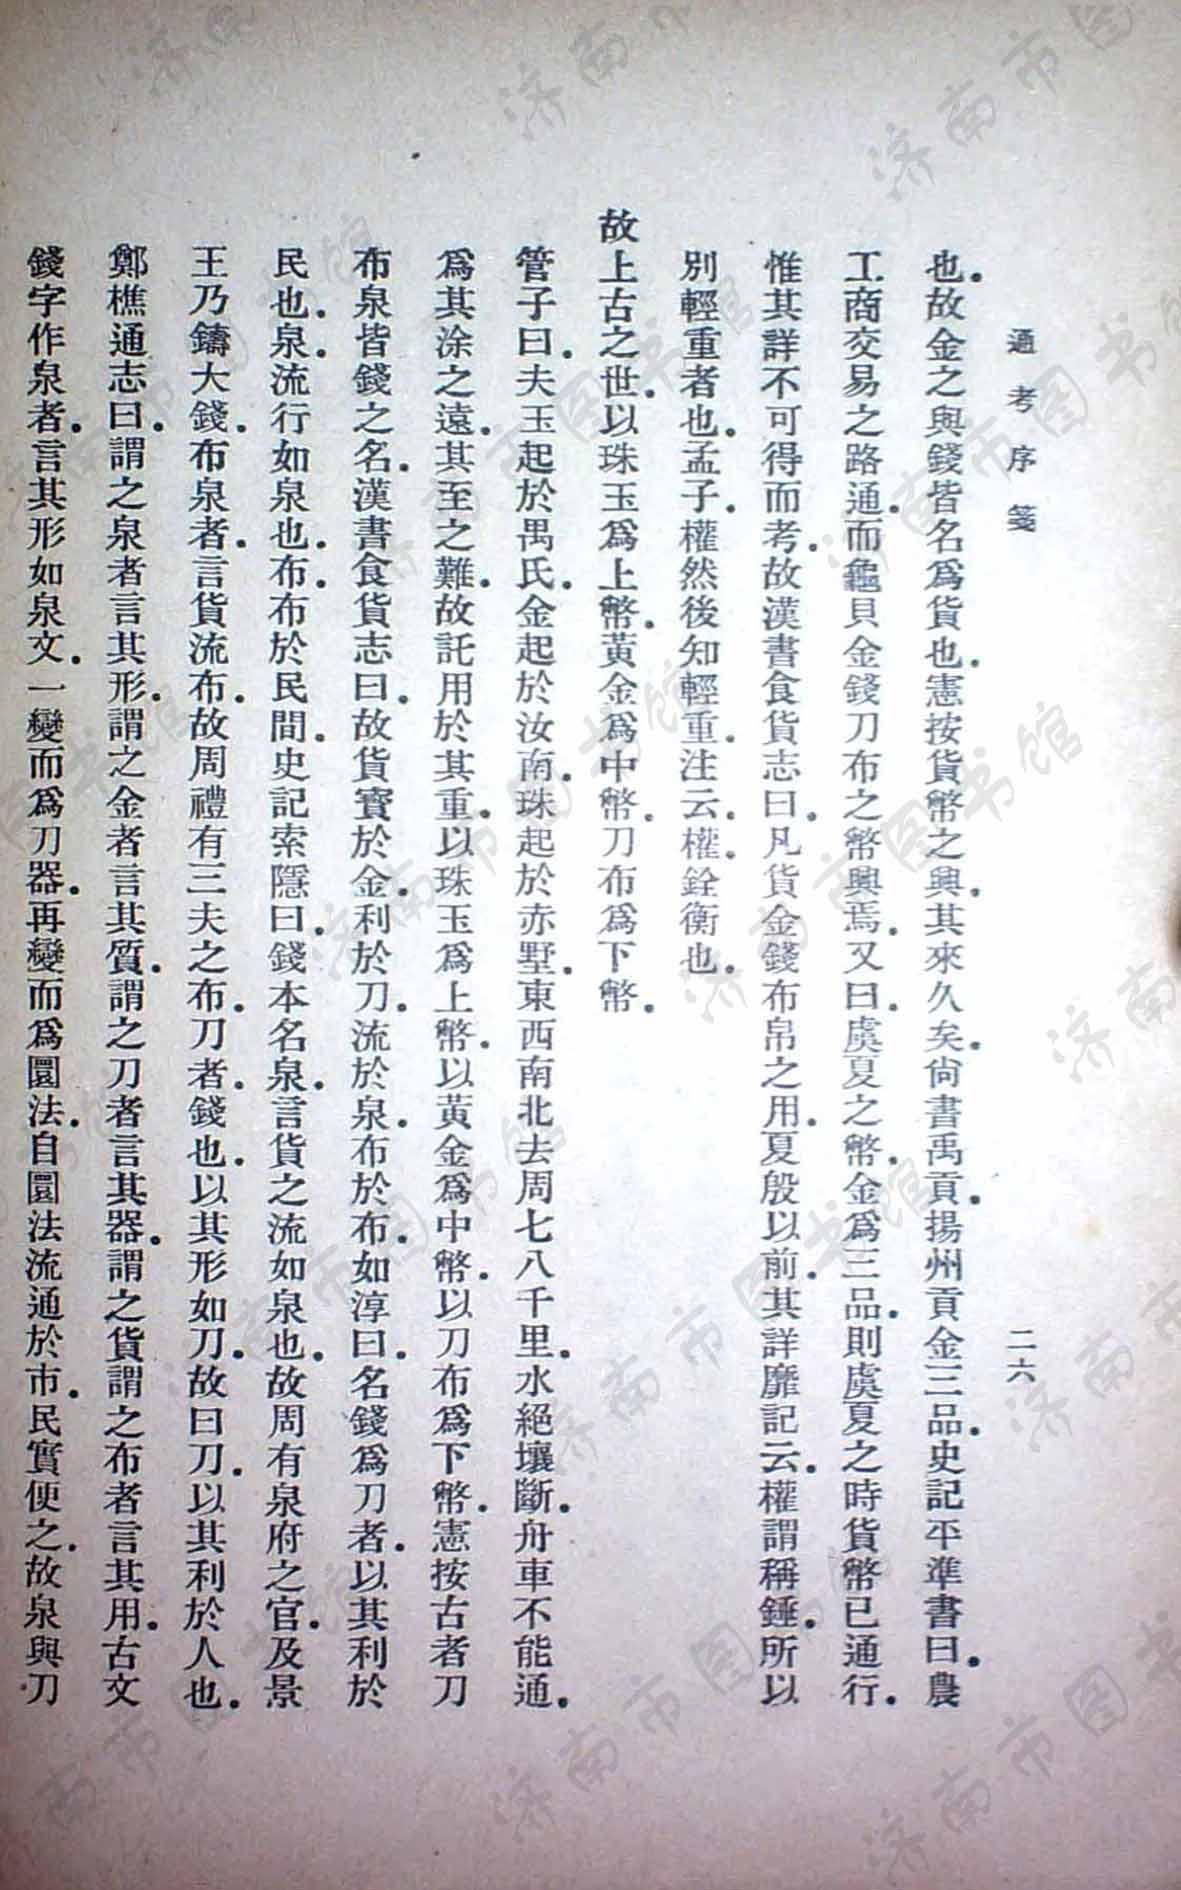 通考序箋
二六
也．故金之與錢皆名爲貨也．憲按貨幣之興．其來久矣．尙書禹貢．揚州貢金三品．史記平準書曰．農
工商交易之路通．而龜貝金錢刀布之幣興焉．又曰．虞夏之幣．金爲三品．則虞夏之時貨幣已通行．
惟其詳不可得而考．故漢書食貨志曰．凡貨金錢布帛之用．夏殷以前．其詳靡記云．權謂稱錘．所以
別輕重者也．孟子．權然後知輕重．注云．權．銓衡也．
故上古之世．以珠玉爲上幣．黃金爲中幣．刀布爲下幣．
管子曰．夫玉起於禺氏．金起於汝南．珠起於赤墅．東西南北去周七八千里．水絕壤斷．舟車不能通．
爲其涂之遠．其至之難．故託用於其重．以珠玉爲上幣．以黃金爲中幣．以刀布爲下幣．憲按古者刀
布泉皆錢之名．漢書食貨志曰．故貨寶於金．利於刀．流於泉．布於布．如淳曰．名錢爲刀者．以其利於
民也．泉．流行如泉也．布．布於民間．史記索隱曰．錢本名泉．言貨之流如泉也．故周有泉府之官．及景
王乃鑄大錢．布泉者．言貨流布．故周禮有三夫之布．刀者．錢也．以其形如刀．故曰刀．以其利於人也．
鄭樵通志曰．謂之泉者言其形．謂之金者言其質．謂之刀者言其器．謂之貨謂之布者言其用．古文
錢字作泉者．言其形如泉文．一變而爲刀器．再變而爲圜法．自圜法流通於市．民實便之．故泉與刀